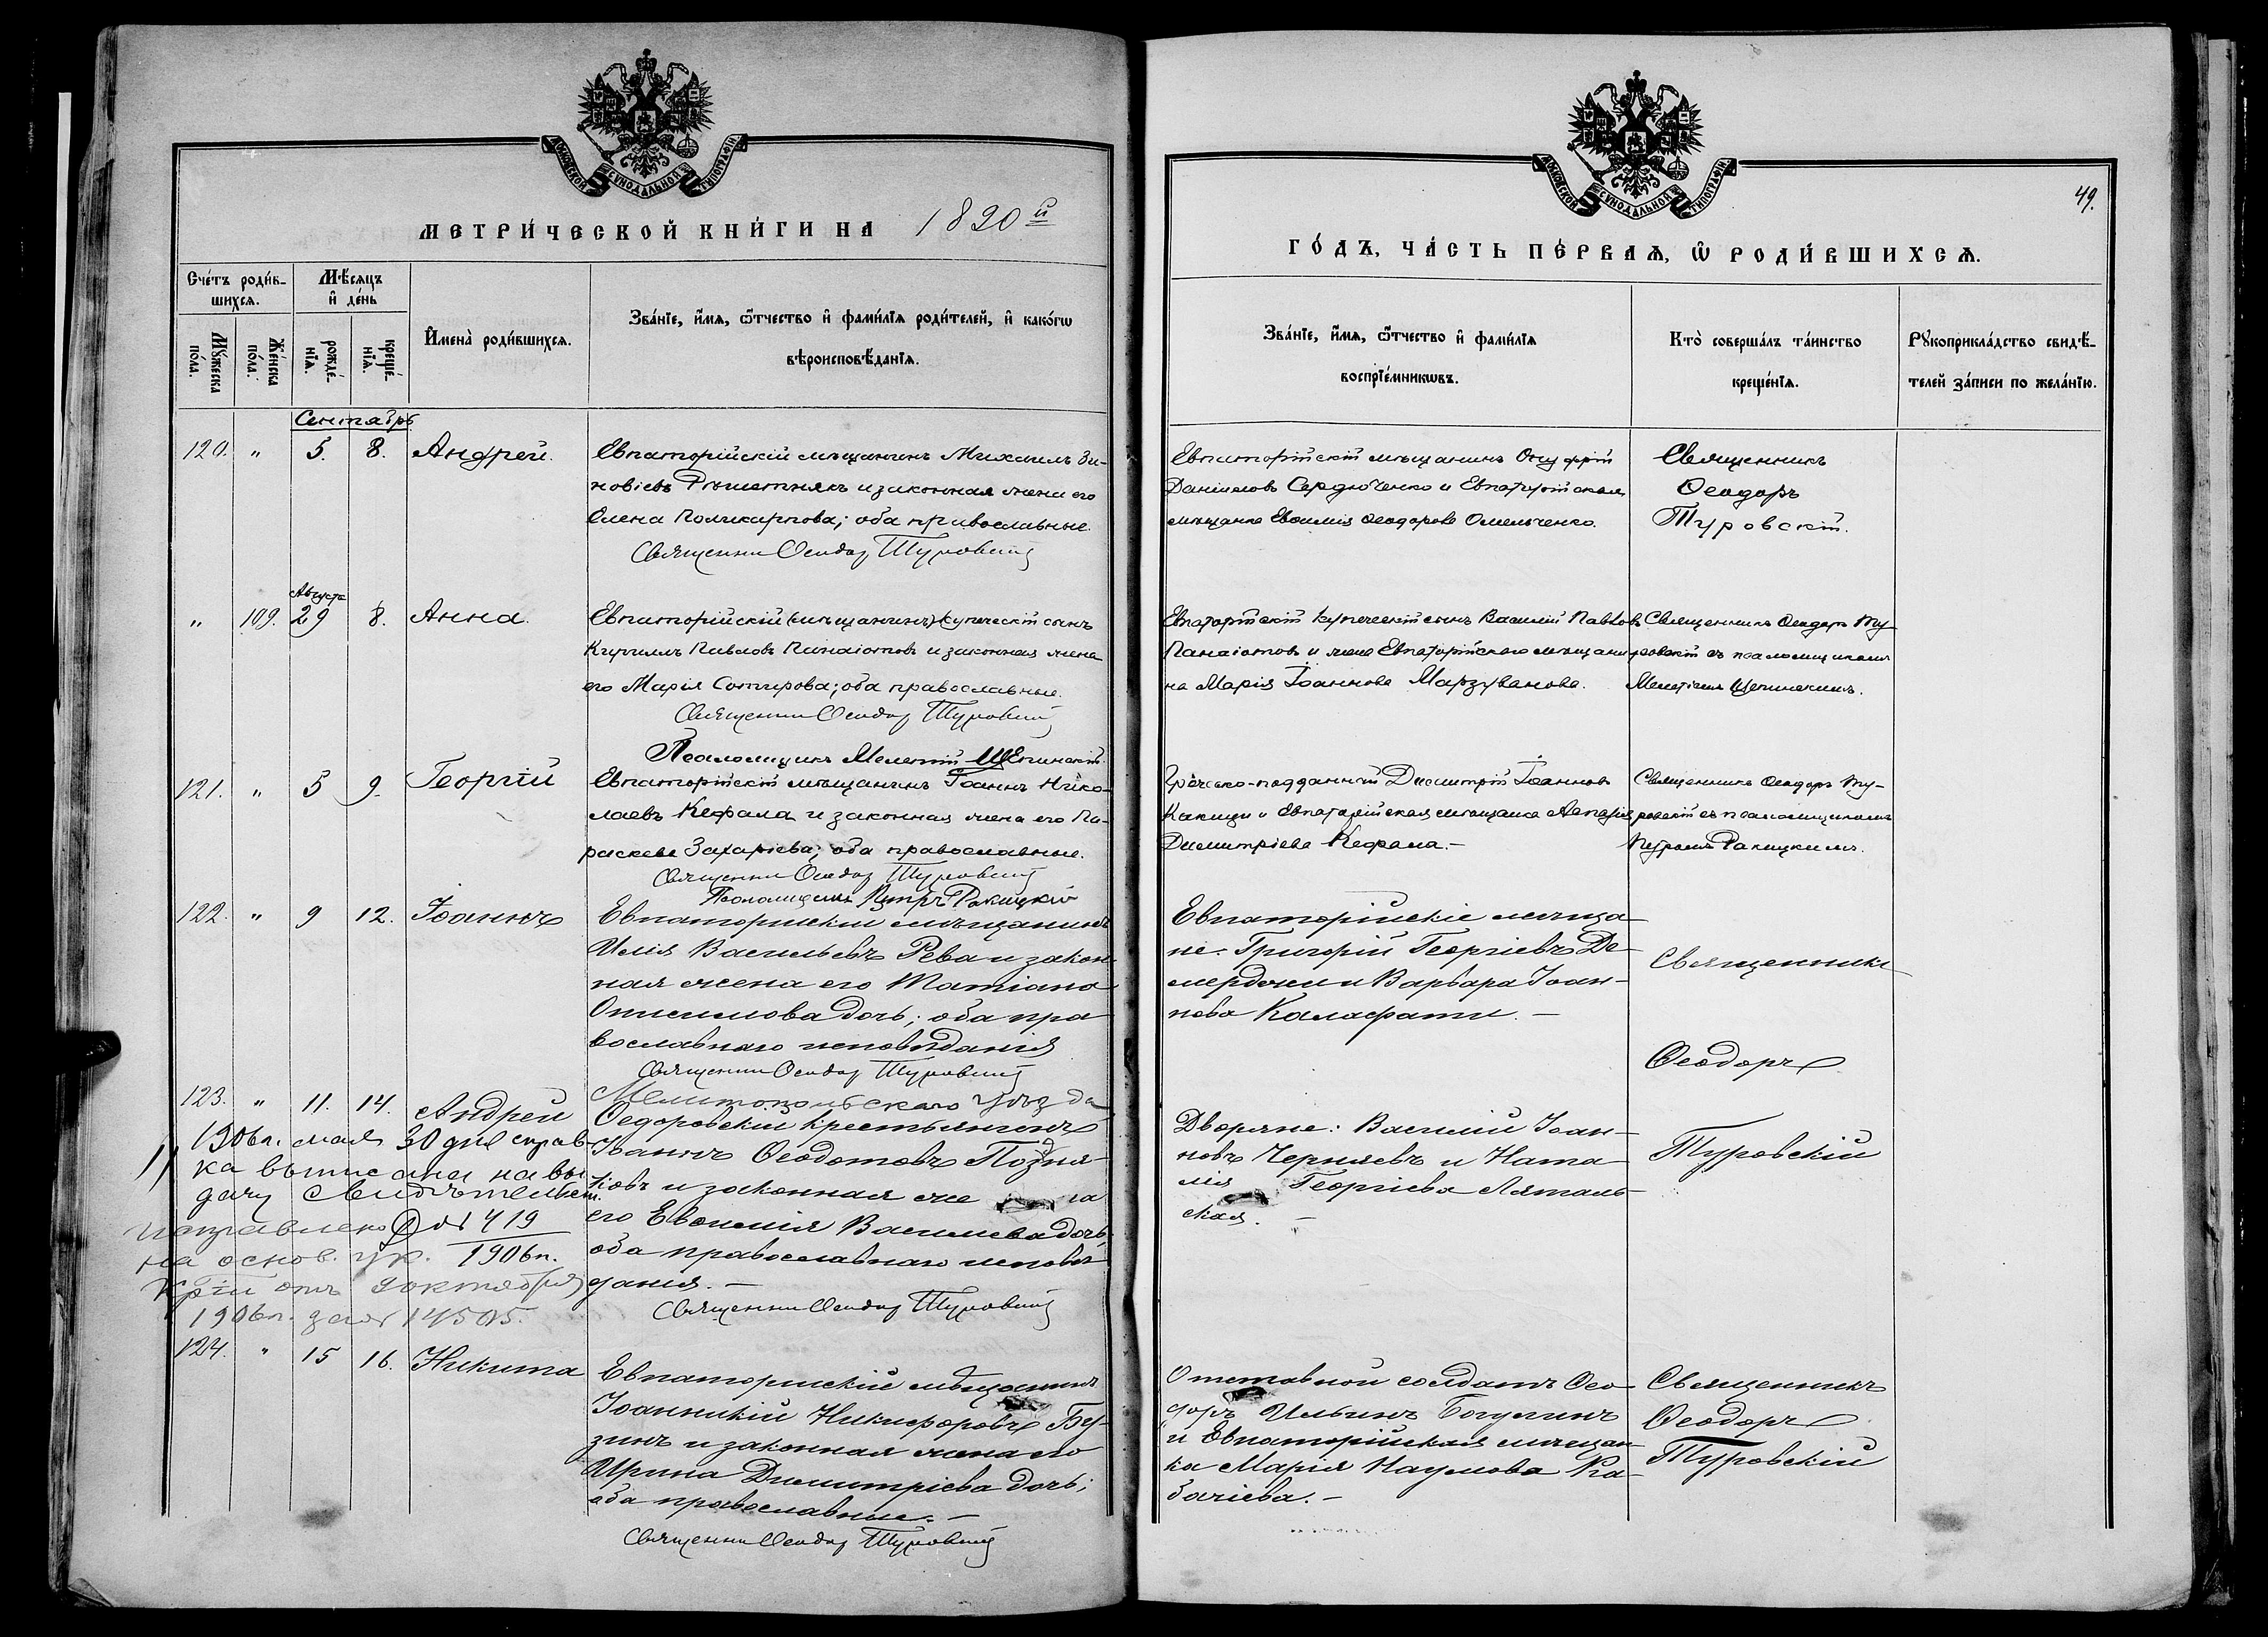 МОСКОВСКОЙ СѴНОДАЛЬНОЙ ТИПОГРАФІИ
МЕТРИ́ЧЕСКОЙ КНИ́ГИ НА 1890й
Сче́тъ роди́в-
шихсѧ.
Мѣ́сѧцъ
и҆ де́нь
Мꙋ́жеска по́ла.
Же́нска по́ла.
рожде́-
нїѧ.
креще́-
нїѧ.
И҆мена̀ роди́вшихсѧ.
Зва́нїе, и҆́мѧ, ѻ҆́тчество и҆ фами́лїѧ роди́телей, и҆ како́гѡ
вѣроисповѣ́данїѧ.
Сентябрь
120. " 5. 8. Андрей.
Евпаторійскій мѣщанинъ Михаилъ Зи-
новіевъ Рѣшетнякъ и законная жена его
Елена Поликарпова; оба православные.
Священни Ѳеодор Туровскій
Августа
" 109. 29 8. Анна.
Евпаторійскій (мѣщанинъ) купеческій сынъ
Кириллъ Павловъ Панаіотовъ и законная жена
его Марія Сотирова; оба православные.
Священни Ѳеодор Туровскій
Псаломщикъ Мелетій Щепинскій
121. " 5 9. Георгій
Евпаторійскій мѣщанинъ Іоаннъ Нико-
лаевъ Кефала и законная жена его Па-
раскева Захаріева; оба православные.
Священни Ѳеодор Туровскій
Псаломщикъ Петръ Ракицкій
122. " 9 12. Іоаннъ
Евпаторійскій мѣщанинъ
Илія Васильевъ Рева и закон-
ная жена его Татіана
Онисимова дочь; оба пра-
вославнаго исповѣданія
Священни Ѳеодор Туровскій
123. " 11. 14. Андрей
Мелитопольскаго уѣзда
Ѳедоровскій крестьянинъ
Іоаннъ Ѳеодотовъ Позня-
ковъ и законная жена
его Евѳимія Василиева дочь,
оба православнаго исповѣ-
данія. —
Священни Ѳеодор Туровскій
1906г. мая 30 дня справ-
ка выписана на вы-
дачу свидѣтельст.
№ 419
1906г.
на основ. ук.
отъ 9 октября
1906г. за № 14505.
124. " 15 16. Никита
Евпаторійскій мѣщанинъ
Іоанникій Никифоровъ Бу-
зинъ и законная жена его
Ирина Димитріева дочь;
оба православные. —
Священни Ѳеодор Туровскій
МОСКОВСКОЙ СѴНОДАЛЬНОЙ ТИПОГРАФІИ
49.
ГО́ДЪ, ЧА́СТЬ ПЕ́РВАѦ, Ѡ҆ РОДИ́ВШИХСѦ.
Зва́нїе, и҆́мѧ, ѻ҆́тчество и҆ фами́лїѧ
воспрїе́мникѡвъ.
Кто̀ соверша́лъ та́инство
креще́нїѧ.
Рꙋкоприкла́дство свидѣ́-
телей за́писи по жела́нїю.
Евпаторійскій мѣщанинъ Онуфрій
Даніиловъ Сердюченко и Евпаторійская
мѣщанка Евѳимія Ѳеодорова Омельченко.
Священникъ
Ѳеодоръ
Туровскій.
Евпаторійскій купеческій сынъ Василій Павловъ
Панаіотовъ и жена Евпаторійскаго мѣщани-
на Марія Іоаннова Марзуванова.
Священникъ Ѳеодоръ Ту-
ровскій съ псаломщикомъ
Мелетіемъ Щепинскимъ.
Греческо-подданный Димитрій Іоанновъ
и Евпаторійская мѣщанка Аспазія
Димитріева Кефала. —
Священникъ Ѳеодоръ Ту-
ровскій съ псаломщикомъ
Петромъ Ракицкимъ.
Евпаторійскіе мѣща-
не: Григорій Георгіевъ Де-
мерджи и Варвара Іоан-
нова Калафати. —
Священникъ
Ѳеодоръ
Туровскій
Дворяне: Василій Іоан-
новъ Черняевъ и Ната-
лія Георгіева Ляталь-
ская. —
Отставной солдатъ Ѳео-
доръ Ильинъ Богулинъ
и Евпаторійская мѣщан-
ка Марія Наумова Ка-
бачіева. —
Священникъ
Ѳеодоръ
Туровскій